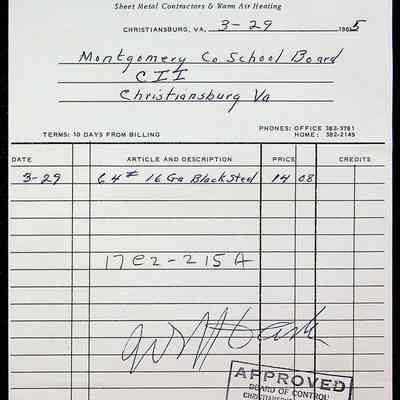 Sheet Metal Contractors & Warm Air Heating
CHRISTIANSBURG, VA, 3-29 1965
Montgomery Co School Board
C I I
Christiansburg Va
TERMS: 10 DAYS FROM BILLING
PHONES: OFFICE 382-3761
HOME: 382-2149
DATE ARTICLE AND DESCRIPTION PRICE CREDITS
3-29 64# 16 Ga Black Steel 14 08
17e2-215A
APPROVED
BOARD OF CONTROL